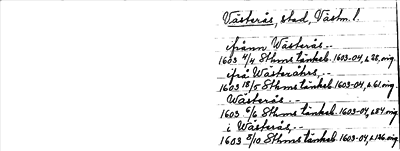 Västerås, stad, Västm. l.
ifrånn Wästerås..-
1603 4/4 Sthms tänkeb. 1603-04, s. 28, orig.
ifrå Wästeråhrs,.-
1603 18/5 Sthms tänkeb. 1603-04, s. 61, orig.
Wästerås..-
1603 6/6 Sthms tänkeb. 1603-04, s. 84, orig.
i Wästerås,.-
1603 8/10 Sthms tänkeb. 1603-04, s. 136, orig.